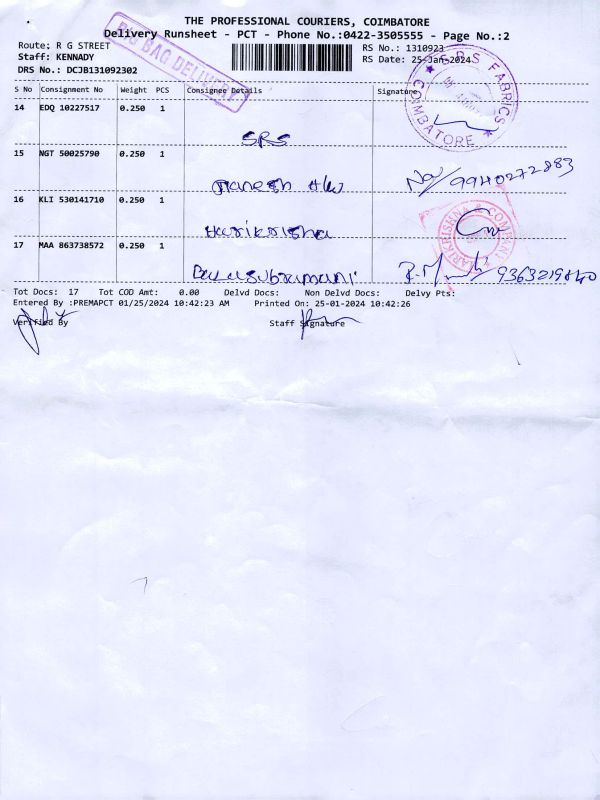 THE PROFESSIONAL COURIERS, COIMBATORE
Delivery Runsheet - PCT - Phone No.:0422-3505555 - Page No.:2
Route: R G STREET
RS No.: 1310923
Staff: KENNADY
RS Date: 25-Jan-2024
DRS No.: DCJB131092302
BAG DELIVERY
S No Consignment No Weight PCS Consignee Details Signature
14 EDQ 10227517 0.250 1
SRS
FABRICS
COIMBATORE
15 NGT 50025790 0.250 1
9940272883
16 KLI 530141710 0.250 1
Harikrisha
HARIKRISHNA & COMPANY
17 MAA 863738572 0.250 1
Balasubramani
9363219840
Tot Docs: 17 Tot COD Amt: 0.00 Delvd Docs: Non Delvd Docs: Delvy Pts:
Entered By :PREMAPCT 01/25/2024 10:42:23 AM Printed On: 25-01-2024 10:42:26
Verified By Staff Signature